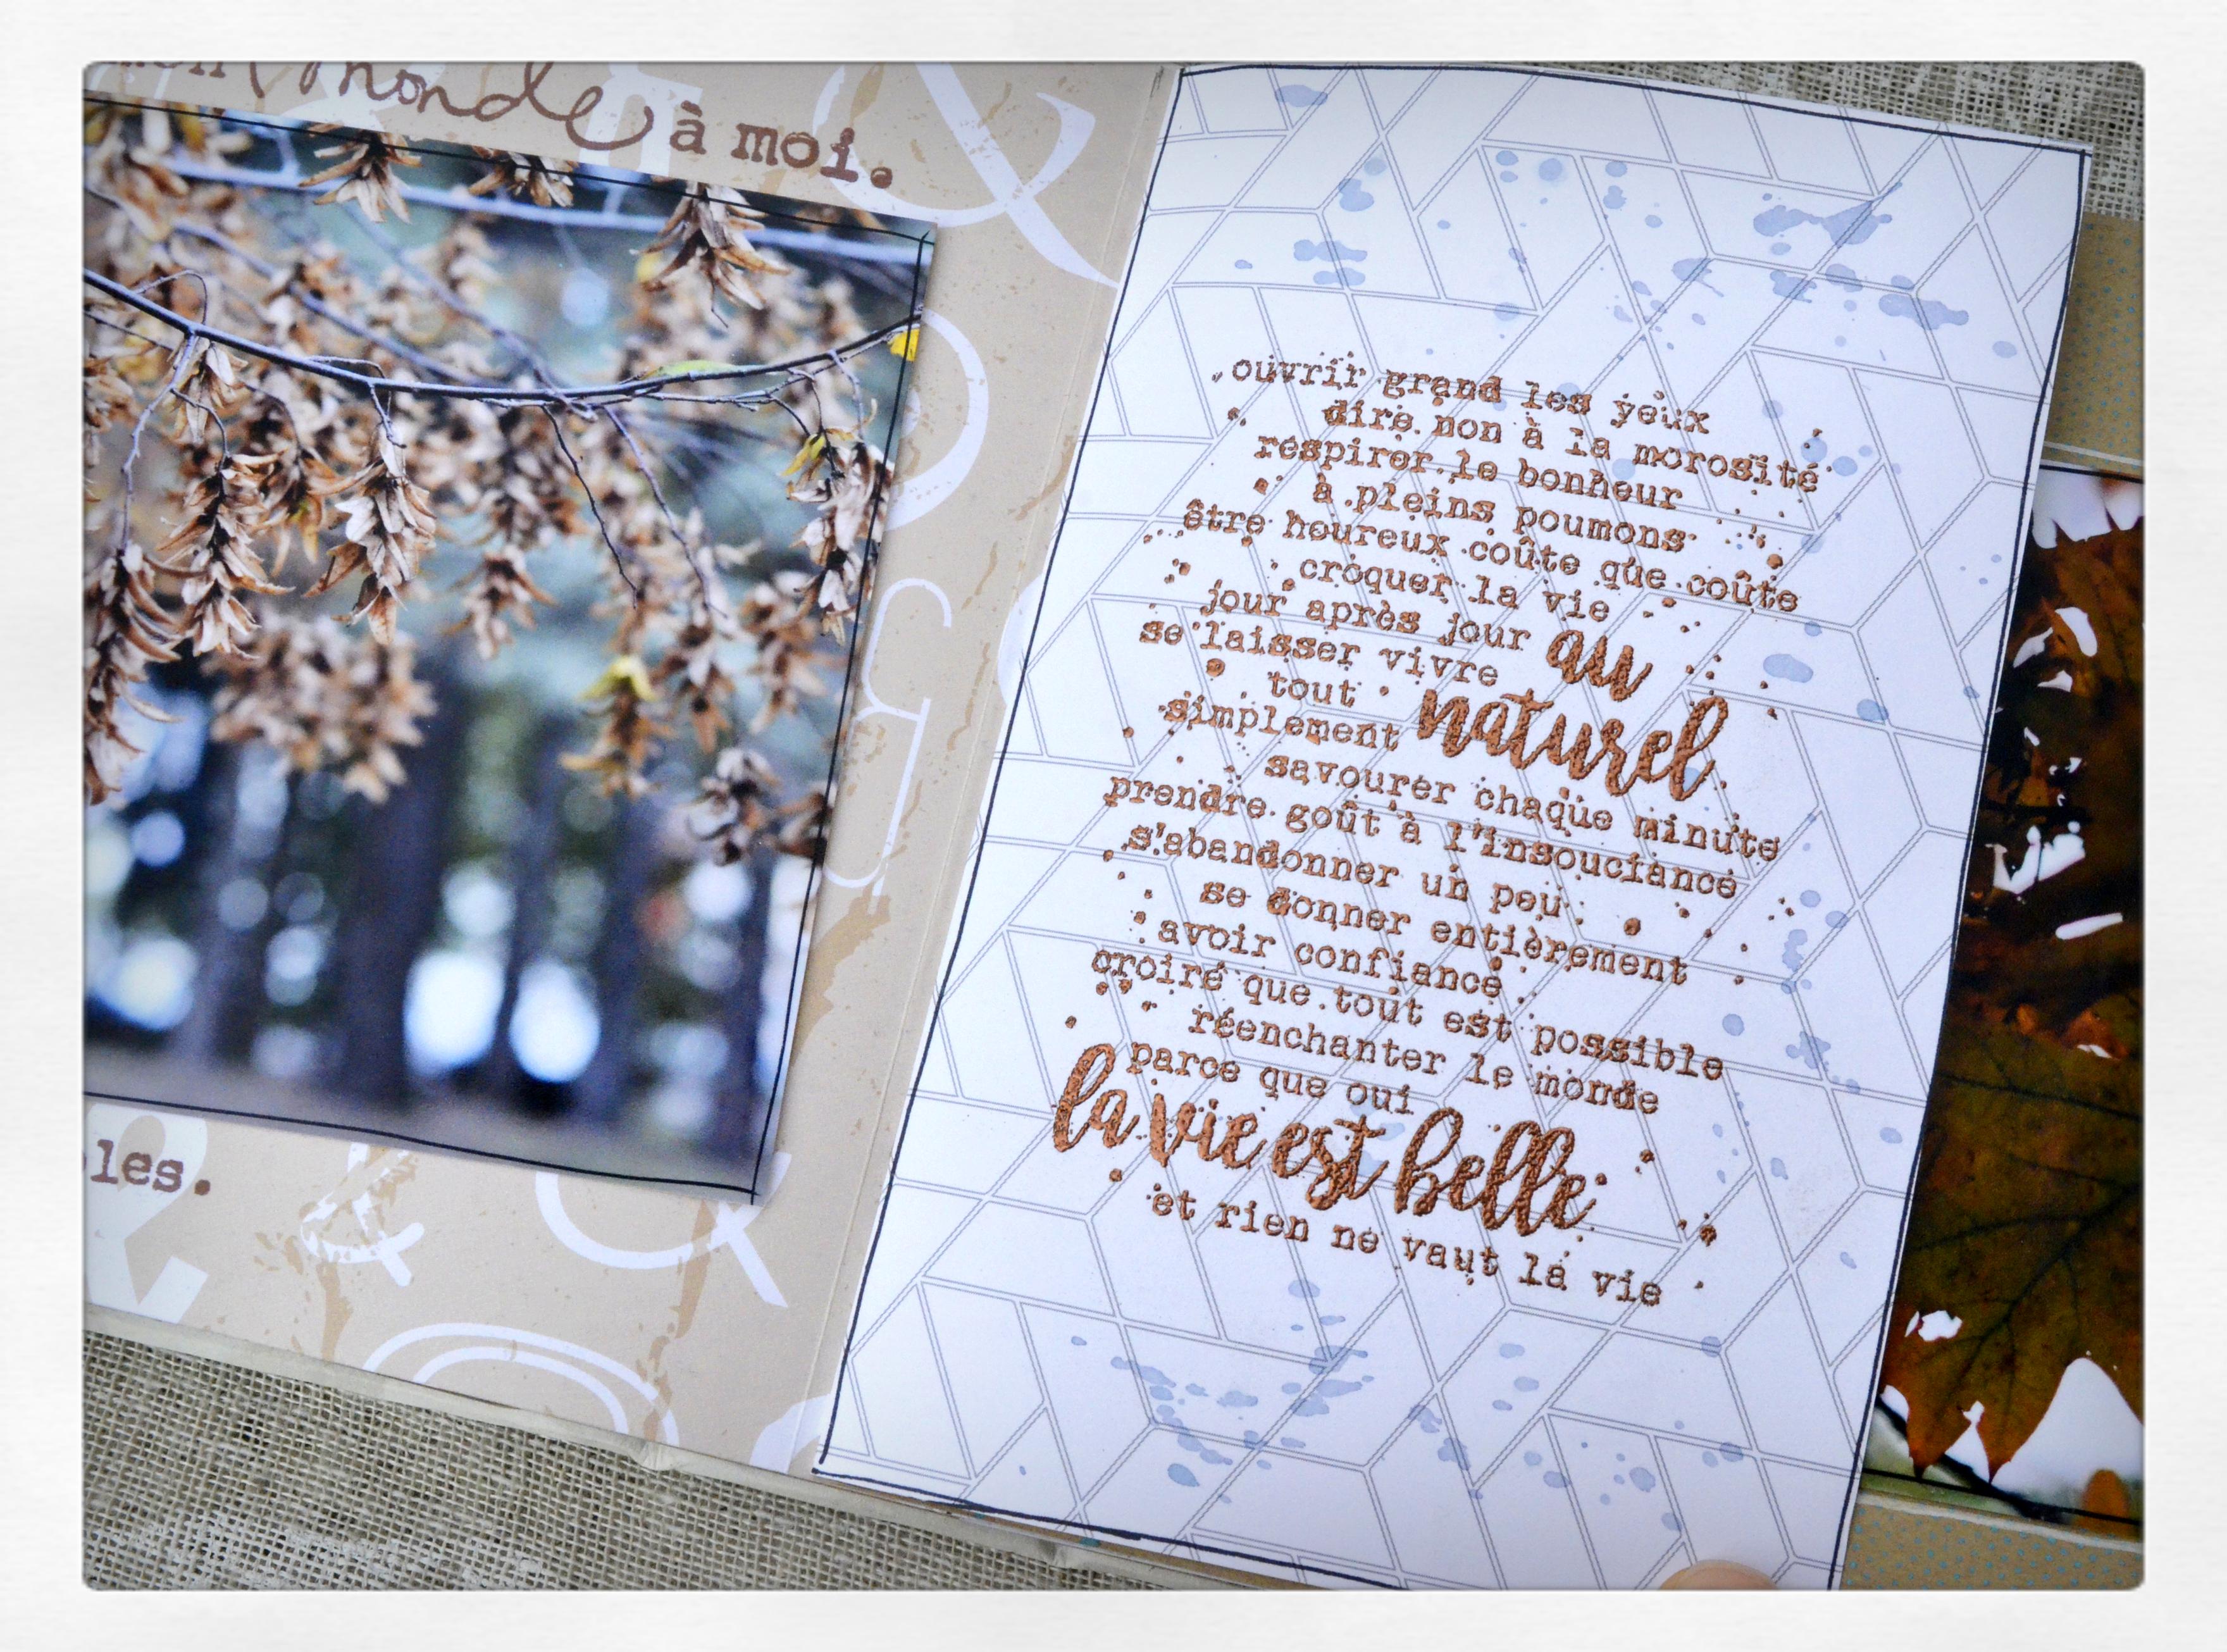 mon monde à moi.
les.
ouvrir grand les yeux
dire non à la morosité
respirer le bonheur
à pleins poumons
être heureux coûte que coûte
croquer la vie
jour après jour
se laisser vivre
au
tout
simplement
naturel
savourer chaque minute
prendre goût à l'insouciance
s'abandonner un peu
se donner entièrement
avoir confiance
croire que tout est possible
réenchanter le monde
parce que oui
la vie est belle
et rien ne vaut la vie